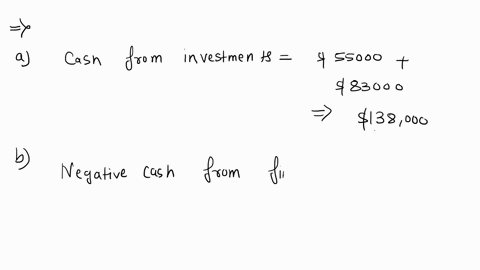 =>
a) Cash from investments = $ 55000 +
$ 83000
=> $138,000
b) Negative cash from